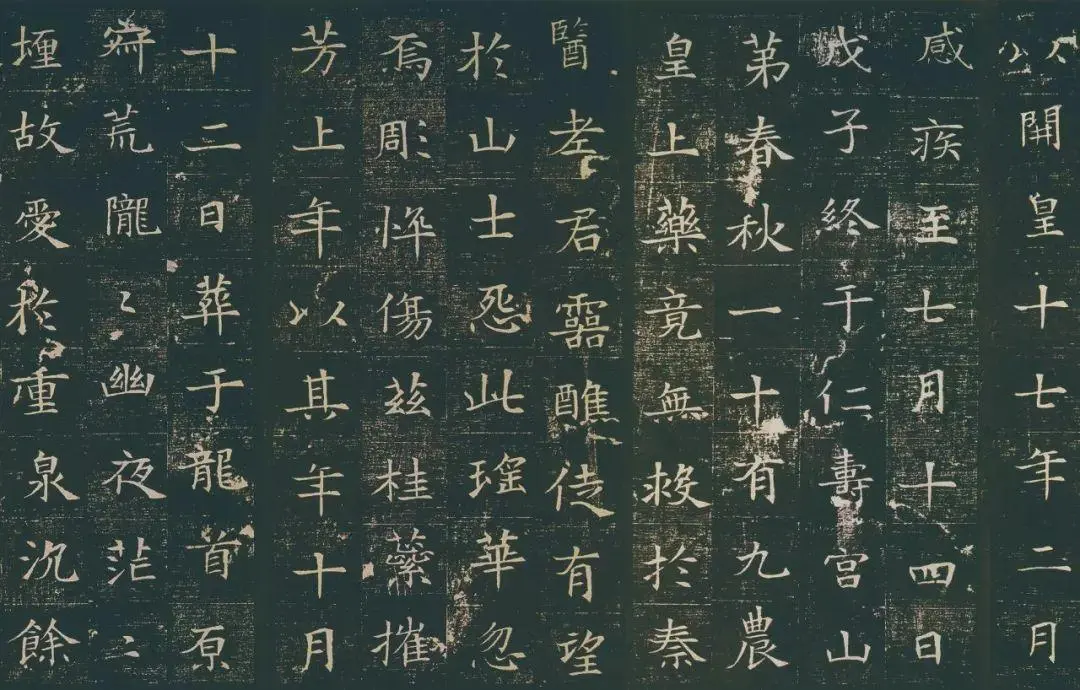 以開皇十七年二月
感疾至七月十四日
戊子終于仁壽宮山
第春秋一十有九農
皇上藥竟無救於秦
醫老君靈醮徒有望
於山士怨此瑤華忽
焉彫悴傷茲桂蘂摧
芳上年以其年十月
十二日葬于龍首原
齊荒隴〻幽夜茫〻
埋故愛於重泉沉餘